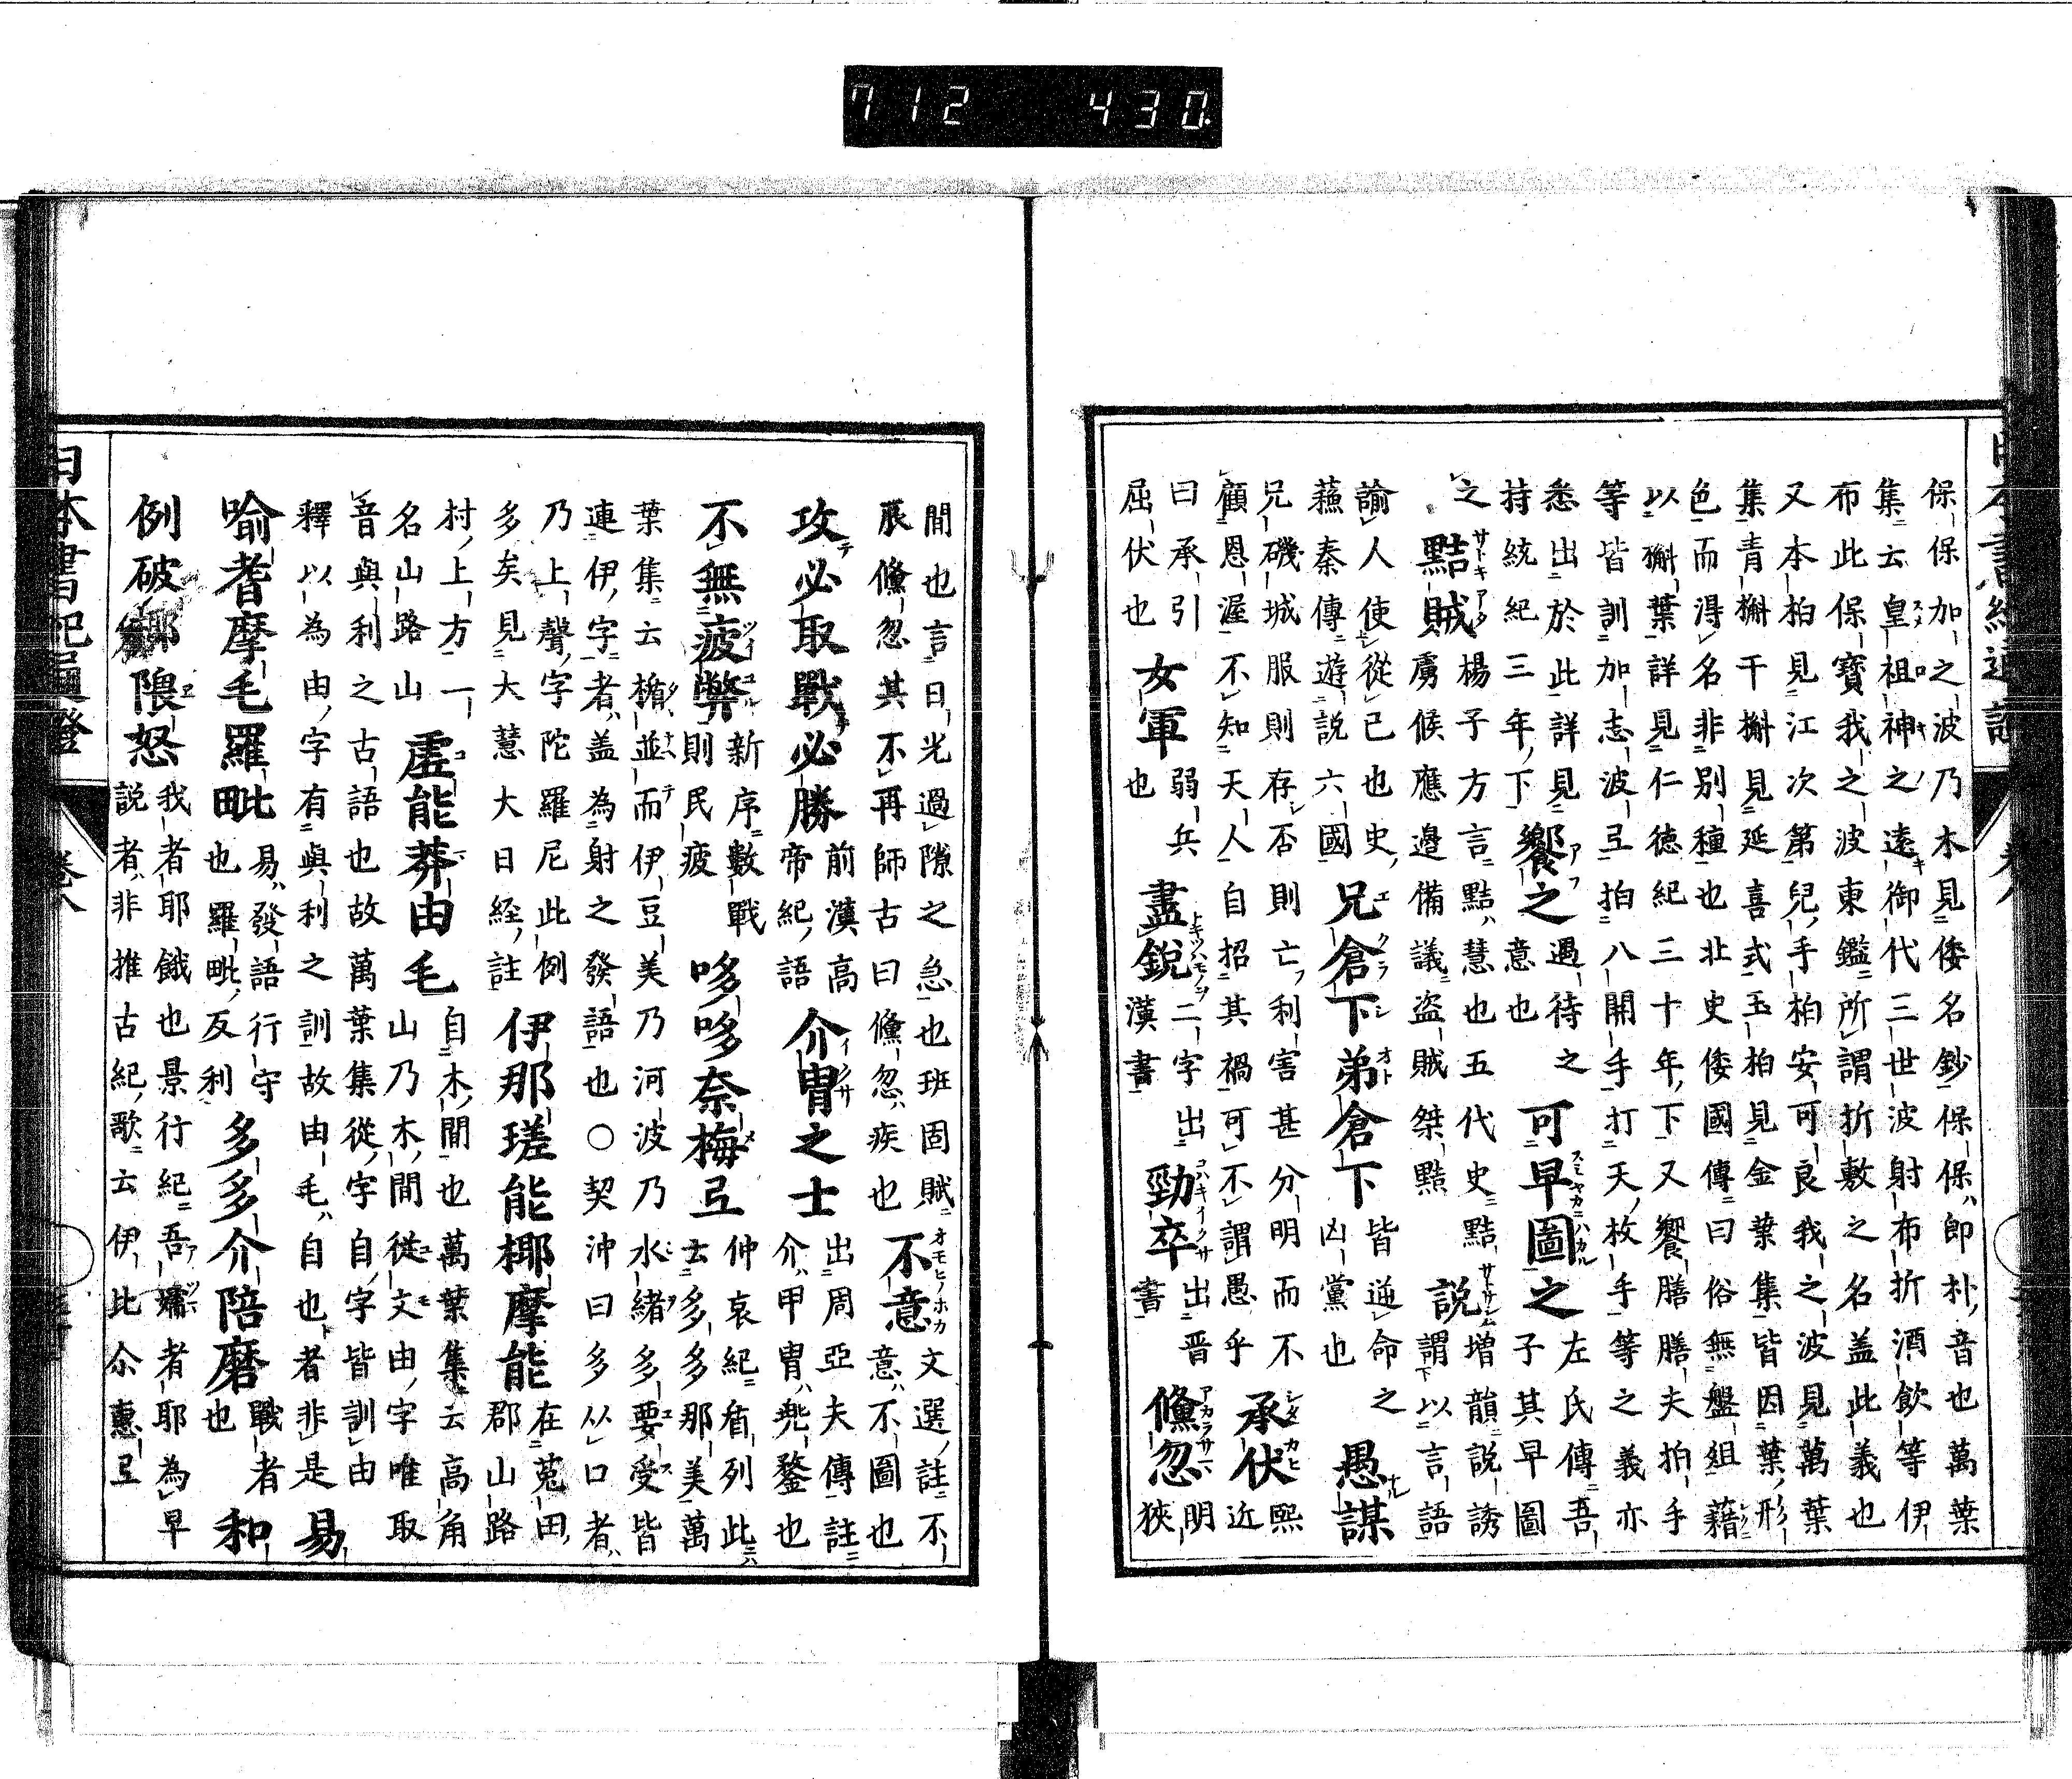 保保加之波乃木見倭名鈔保保ハ即朴音也萬葉
集云皇祖神之遠御代三世波射布折酒飲等伊
布此保寶我之波東鑑所謂折敷之名盖此義也
又本柏見江次第兒手柏安可良我之波見萬葉
集青槲干槲見延喜式玉柏見金葉集皆因葉形
色而淂名非別種也北史倭國傳曰俗無盤俎藉
以槲葉詳見仁德紀三十年下又饗膳膳夫拍手
等皆訓加志波弖拍八開手打天枚手等之義亦
悉出於此詳見
持統紀三年下
饗之
遇待之
意也
可早圖之
左氏傳吾
子其早圖
之
黠賊
楊子方言黠ハ慧也五代史黠
虜候應邊備議盗賊桀黠
説
増韻説誘
謂以言語
諭人使從已也史
蘓秦傳遊説六國
兄倉下弟倉下
皆逆命之
凶黨也
愚謀
兄磯城服則存否則亡利害甚分明而不
顧恩渥不知天人自招其禍可不謂愚乎
承伏
熙
近
曰承引
屈伏也
女軍
弱兵
也
盡銳
二字出
漢書
勁卒
出晋
書
儵忽
明
狹
間也言日光過隙之急也班固賦
儵忽其不再師古曰儵忽ハ疾也
不意
文選註不
意ハ不圖也
攻必取戰必勝
前漢高
帝紀語
介冑之士
出周亞夫傳註
介ハ甲冑ハ兠鍪也
不無疲弊
新序數戰
則民疲
哆哆奈梅弖
仲哀紀盾列此
云多多那美萬
葉集云楯並而伊豆美乃河波乃水緒多要受皆
連伊字者盖為射之發語也○契沖曰多从口者
乃上聲字陀羅尼此例
多矣見大慧大日経註
伊那瑳能椰摩能
在菟田
郡山路
村上方一
名山路山
虚能莽由毛
自木間也萬葉集云高角
山乃木間從文由字唯取
音與利之古語也故萬葉集從字自字皆訓由
釋以為由字有與利之訓故由毛ハ自也者非是
易
喻耆摩毛羅毗
易ハ發語行守
也羅毗反利
多多介陪磨
戰者
也
和
例破椰隈怒
我者耶餓也景行紀吾孀者耶為早
説者非推古紀歌云伊比尒惠弖